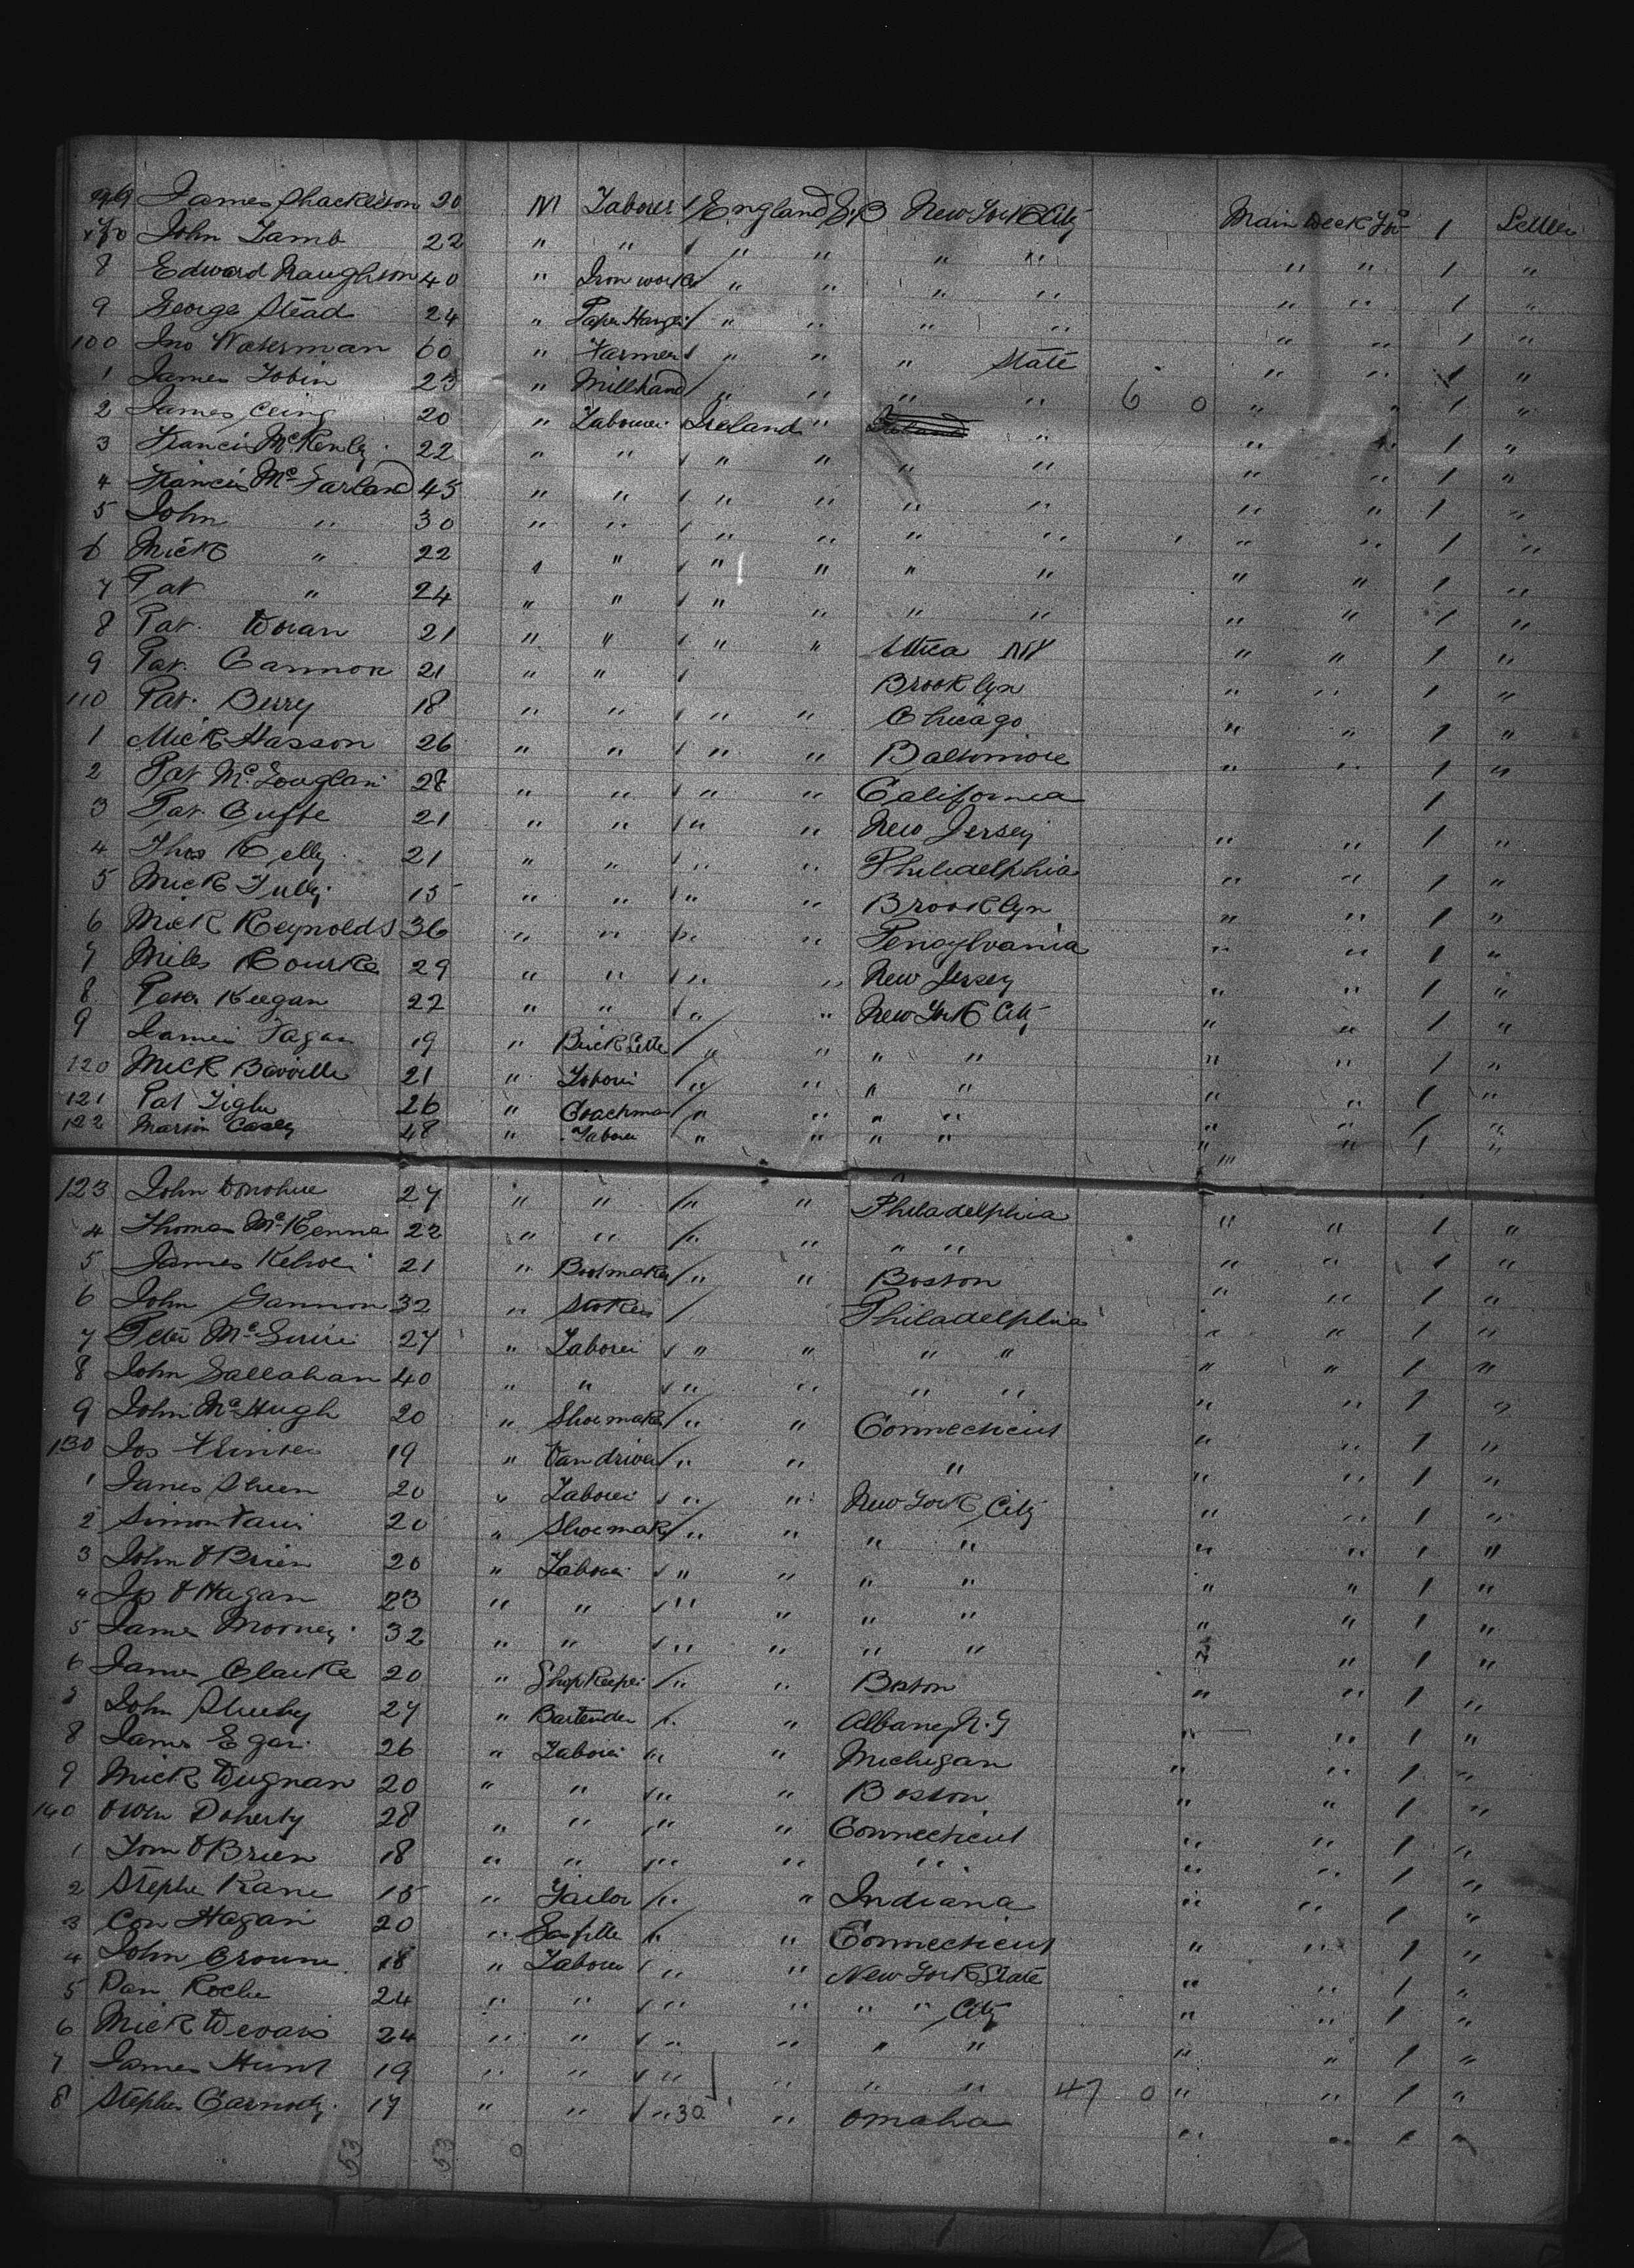 James Shackleton 20 M Laborer England S.B New York City Main Deck 1 Settler
John Lamb 22 " " " " " " " " 1 "
8 Edward Naughton 40 " Iron worker " " " " " " 1 "
9 George Stead 24 " Paper Hanger " " " " " " 1 "
100 Jno Waterman 60 " Farmer " " " State " " 1 "
1 James Tobin 23 " Millhand " " " " 6 0 " " 1 "
2 James 20 " Labourer Ireland " " " " 1 "
3 Francis McKenly 22 " " " " " " " " 1 "
4 Francis McFarland 45 " " " " " " " " 1 "
5 John " 30 " " " " " " " " 1 "
6 Mick " 22 " " " " " " " " 1 "
7 Pat " 24 " " " " " " " " 1 "
8 Pat. Doran 21 " " " " Utica NY " " 1 "
9 Pat. Cannon 21 " " Brooklyn " " 1 "
110 Pat. Berry 18 " " " " Chicago " " 1 "
1 Mick Hasson 26 " " " " Baltimore " " 1 "
2 Pat 28 " " " " California 1
3 Pat. Cuffe 21 " " " " New Jersey " " 1 "
4 Thos Kelly 21 " " " " Philadelphia " " 1 "
5 Mick Tully 15 " " " " Brooklyn " " 1 "
6 Mick Reynolds 36 " " " " Pensylvania " " 1 "
7 Miles Rourke 29 " " " " New Jersey " " 1 "
8 Peter Keegan 22 " " " " New York City " " 1 "
9 James Fagan 19 " " " " " " " 1 "
120 Mick 21 " Laborer " " " " " " 1 "
121 Pat Tighe 26 " Coachman " " " " " " 1 "
122 Martin Casey 48 " Laborer " " " " " " 1 "
123 John Donohue 27 " " " " Philadelphia " " 1 "
4 Thomas McKenna 22 " " " " " " " " 1 "
5 James 21 " Bootmaker " " Boston " " 1 "
6 John Gannon 32 " Stoker Philadelphia " " 1 "
7 Peter McGuire 27 " Laborer " " " " " " 1 "
8 John Gallahan 40 " " " " " " " " 1 "
9 John McHugh 20 " Shoemaker " " Connecticut " " 1 "
130 Jos 19 " Van driver " " " " " 1 "
1 James 20 " Laborer " " New York City " " 1 "
2 Simon 20 " Shoemaker " " " " " " 1 "
3 John OBrien 20 " Laborer " " " " " " 1 "
4 Jas OHagan 23 " " " " " " " " 1 "
5 James Mooney 32 " " " " " " " 1 "
6 James Clarke 20 " Shop Keeper " " Boston " " 1 "
John Sheehy 27 " Bartender " " Albany N.Y " " 1 "
8 James Egan 26 " Laborer " " Michigan " " 1 "
9 Mick Dugnan 20 " " " " Boston " " 1 "
140 Owen Doherty 28 " " " " Connecticut " " 1 "
1 Tom OBrien 18 " " " " " " " 1 "
2 Stephen Kane 15 " Tailor " " Indiana " " 1 "
3 Con Hagan 20 " Gasfitter " " Connecticut " " 1 "
4 John 18 " Laborer " " New York State " " 1 "
5 Dan Roche 24 " " " " " " City " " 1 "
6 Mick 24 " " " " " " " " 1 "
7 James Hunt 19 " " " " " " 47 0 " " 1 "
8 Stephen Carmody 17 " " " 30 " Omaha " " 1 "
53 53 0